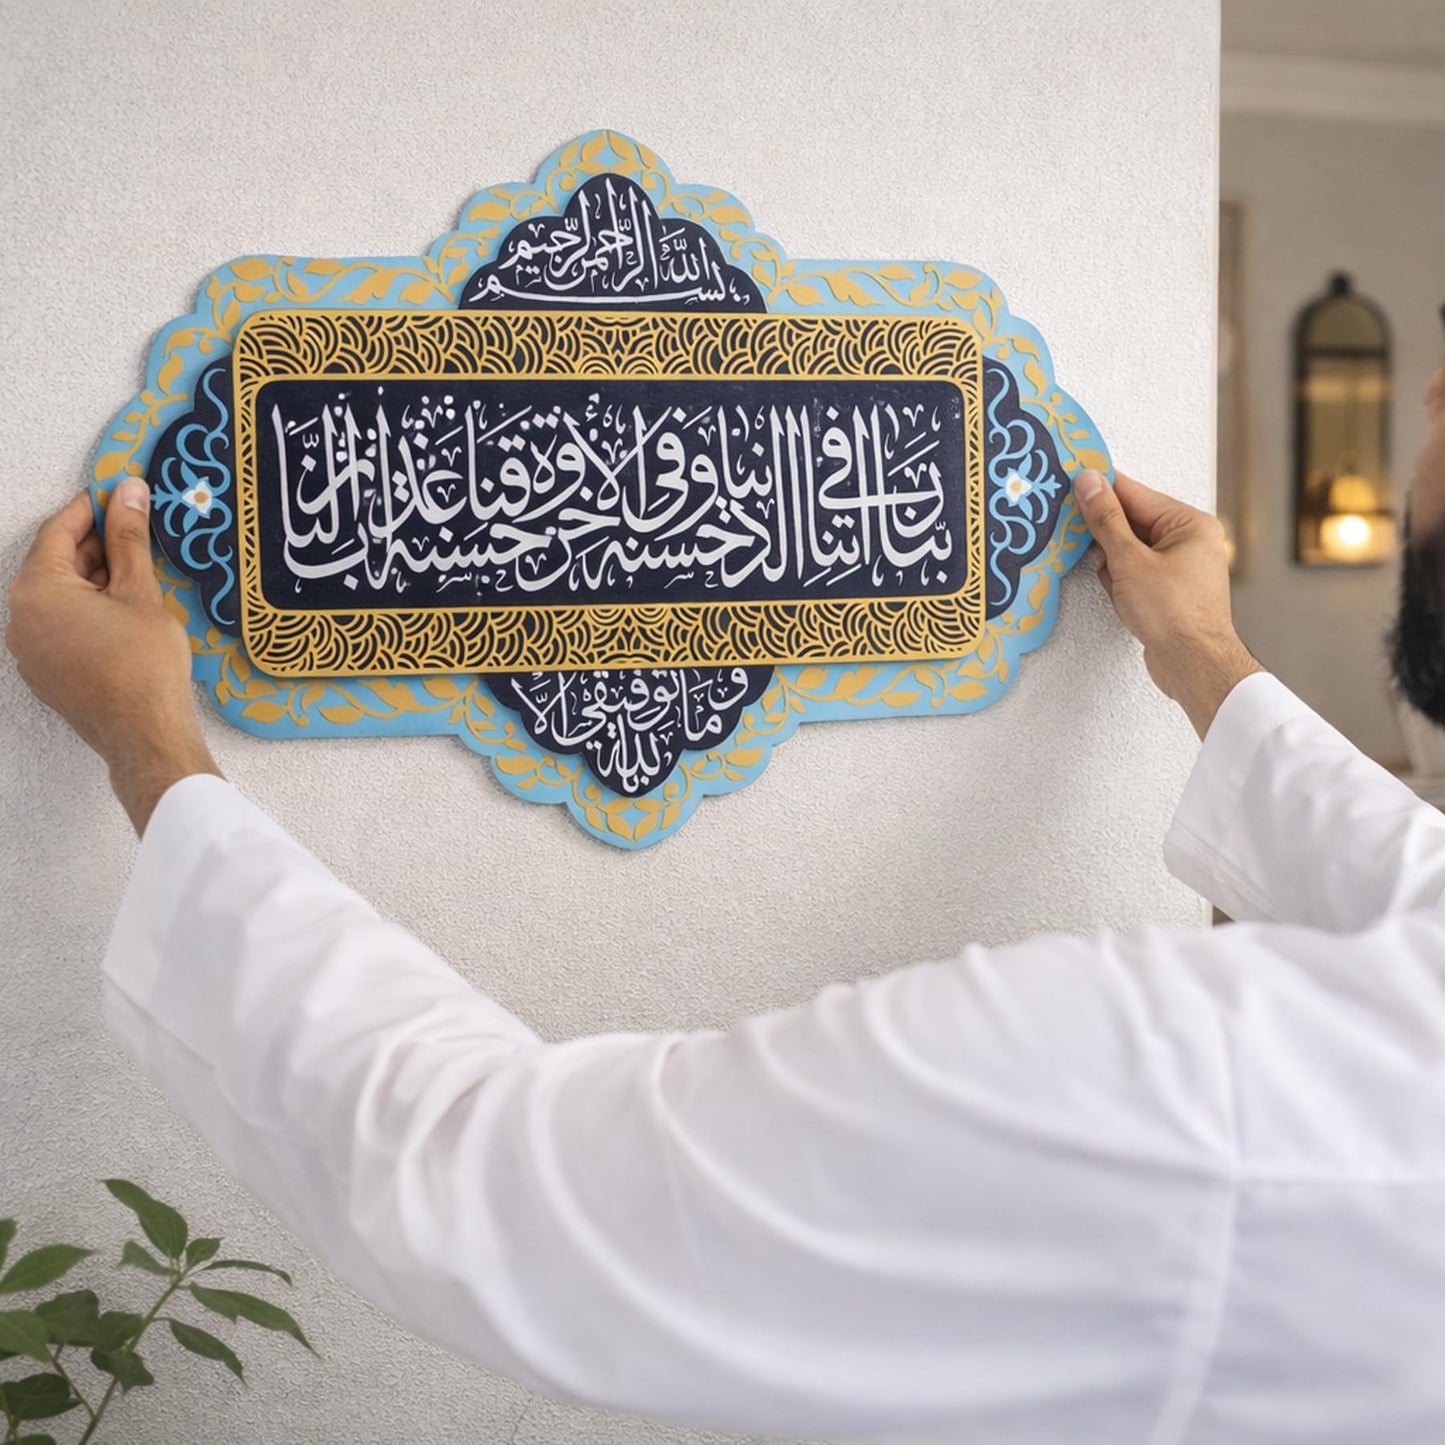 بسم الله الرحمن الرحيم
ربنا آتنا في الدنيا حسنة وفي الآخرة حسنة وقنا عذاب النار
وما توفيقي إلا بالله